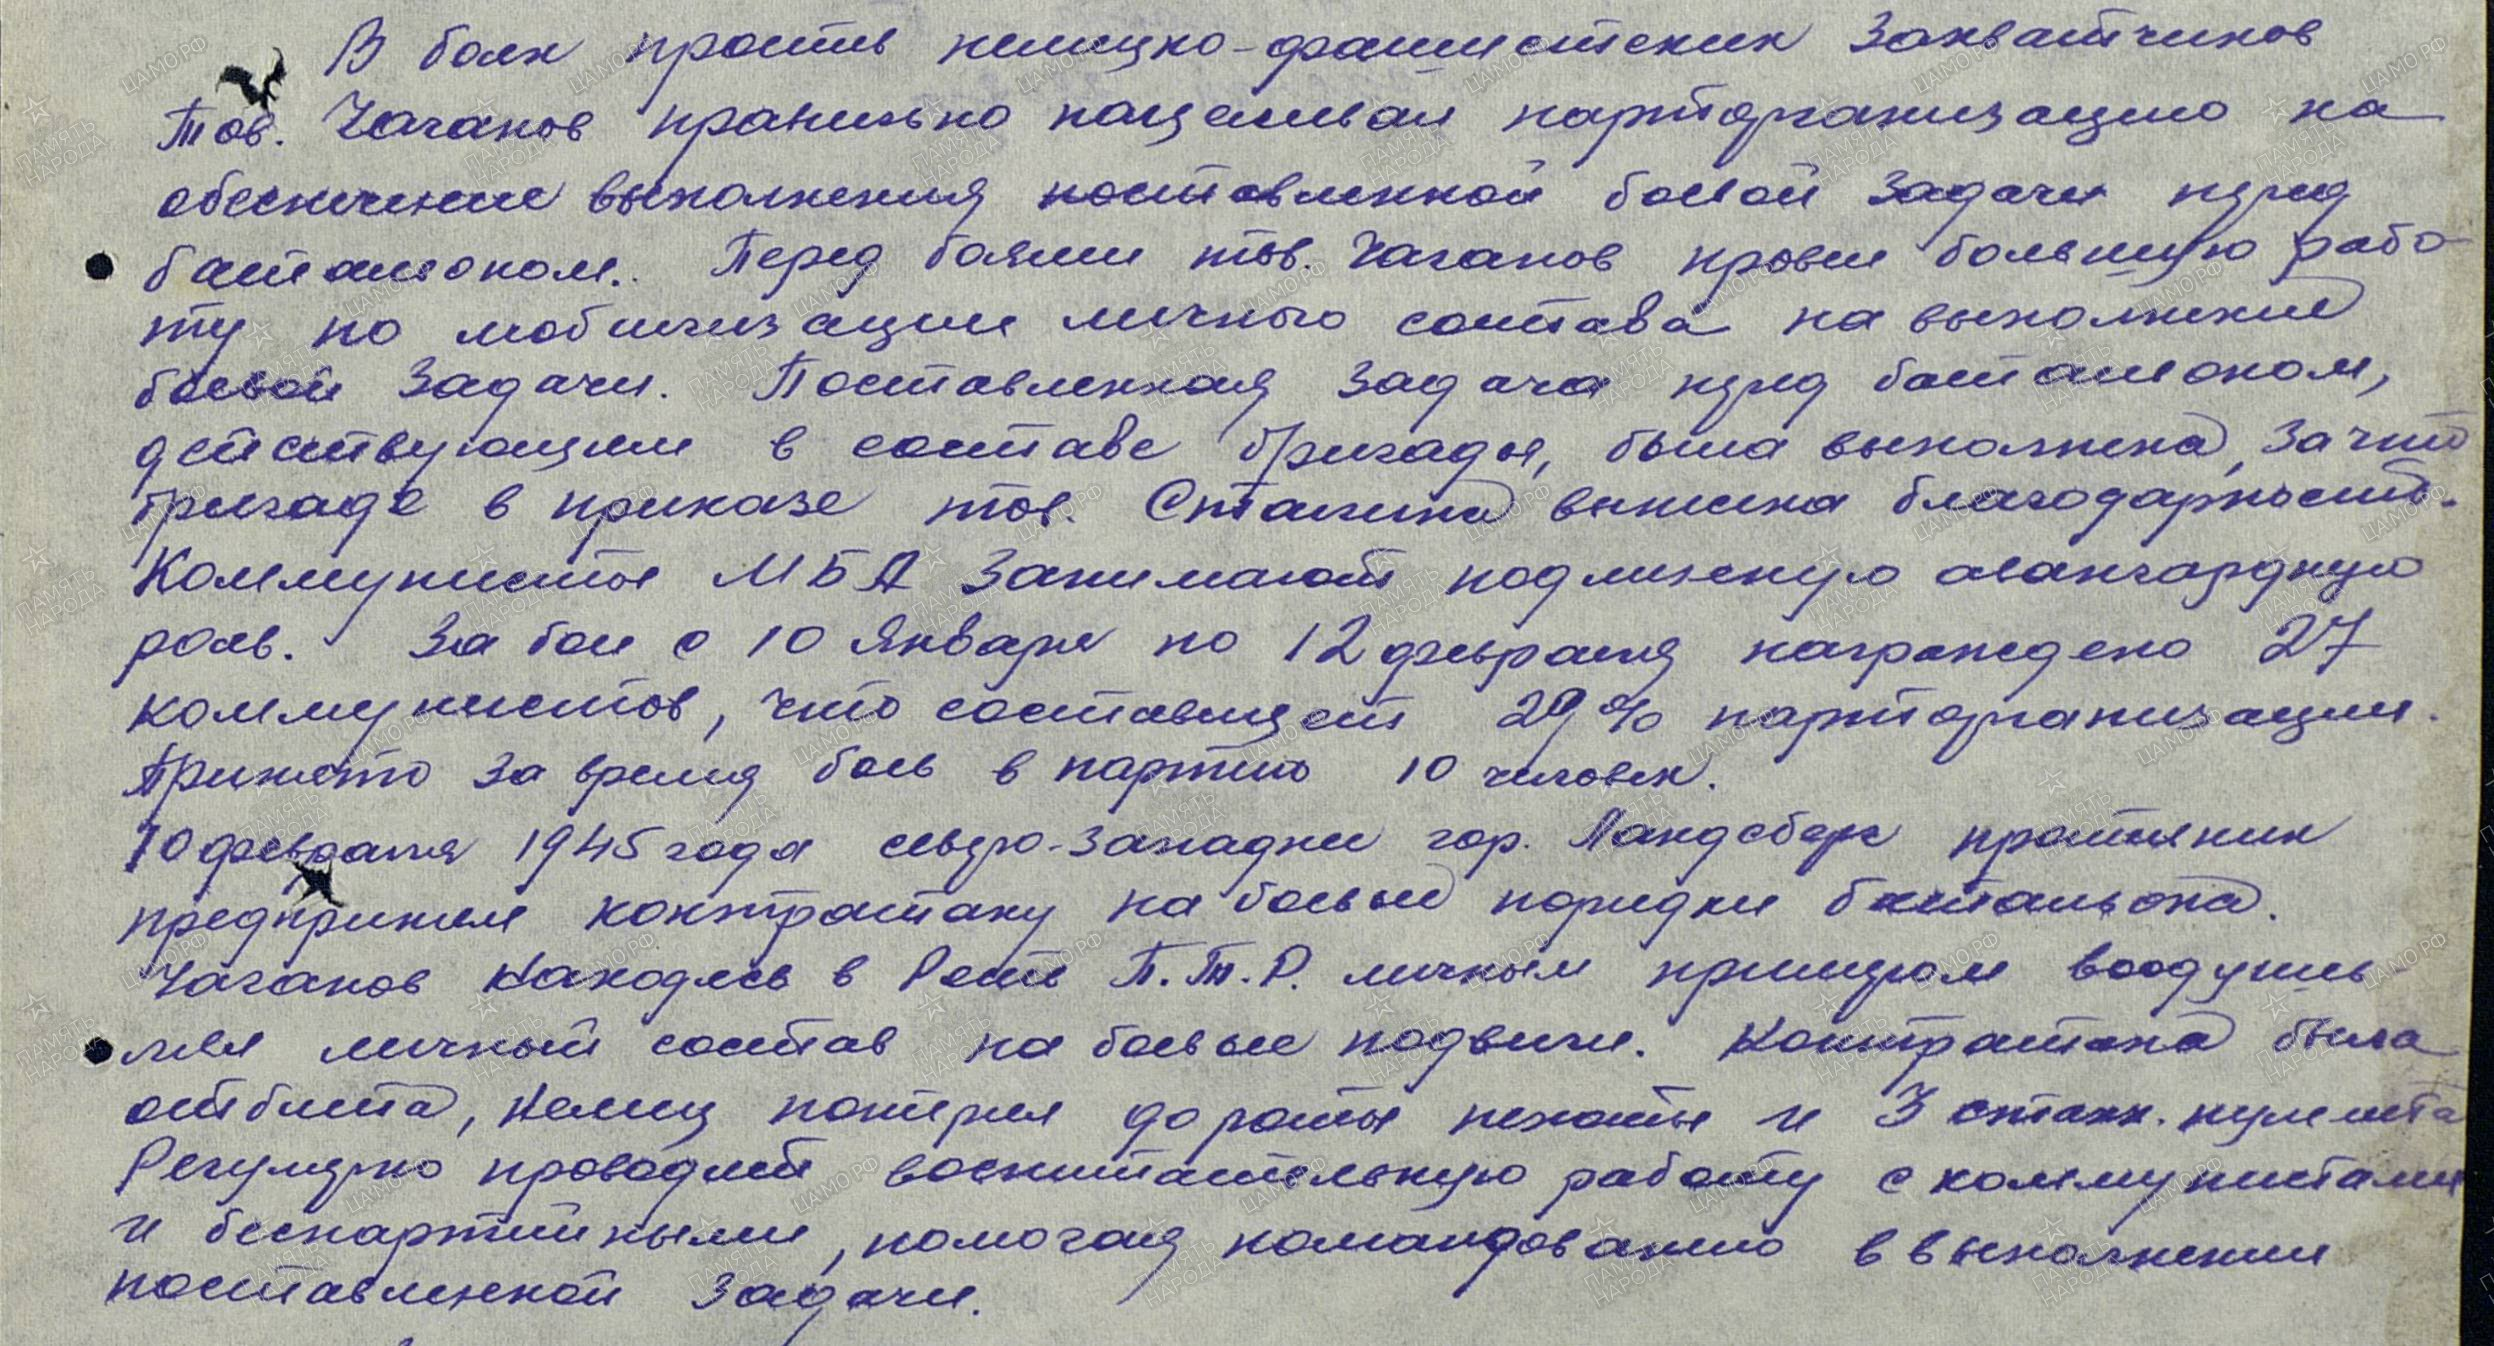 В боях против немецко-фашистских захватчиков
тов. Чаганов правильно нацеливал парторганизацию на
обеспечение выполнения поставленной боевой задачи перед
батальоном. Перед боями тов. Чаганов провел большую рабо-
ту по мобилизации личного состава на выполнение
боевой задачи. Поставленная задача перед батальоном,
действующем в составе бригады, была выполнена, за что
бригаде в приказе тов. Сталина вынесена благодарность.
Коммунисты МБА занимают подлинную авангардную
роль. За бои с 10 января по 12 февраля награждено 27
коммунистов, что составляет 29% парторганизации.
Принято за время боев в партию 10 человек.
10 февраля 1945 года северо-западнее гор. Ландсберг противник
предпринял контратаку на боевые порядки батальона.
Чаганов находясь в роте П.Т.Р. личным примером воодушев-
лял личный состав на боевые подвиги. Контратака была
отбита, немец потерял до роты пехоты и 3 станк. пулемета
Регулярно проводит воспитательную работу с коммунистами
и беспартийными, помогая командованию в выполнении
поставленной задачи.